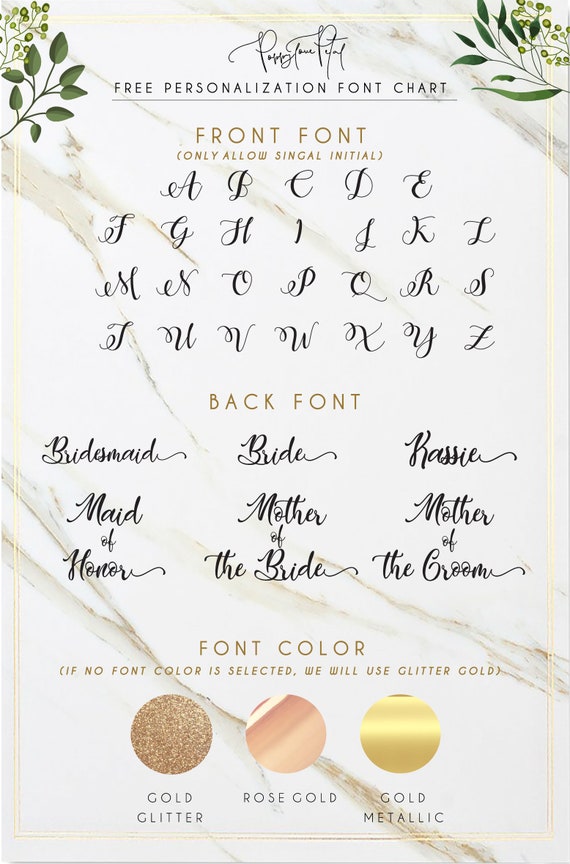 PoppyLovePetal
FREE PERSONALIZATION FONT CHART
FRONT FONT
(ONLY ALLOW SINGAL INITIAL)
A B C D E
F G H I J K L
M N O P Q R S
T U V W X Y Z
BACK FONT
Bridesmaid Bride Kassie
Maid of Honor
Mother of the Bride
Mother of the Groom
FONT COLOR
(IF NO FONT COLOR IS SELECTED, WE WILL USE GLITTER GOLD)
GOLD GLITTER
ROSE GOLD
GOLD METALLIC